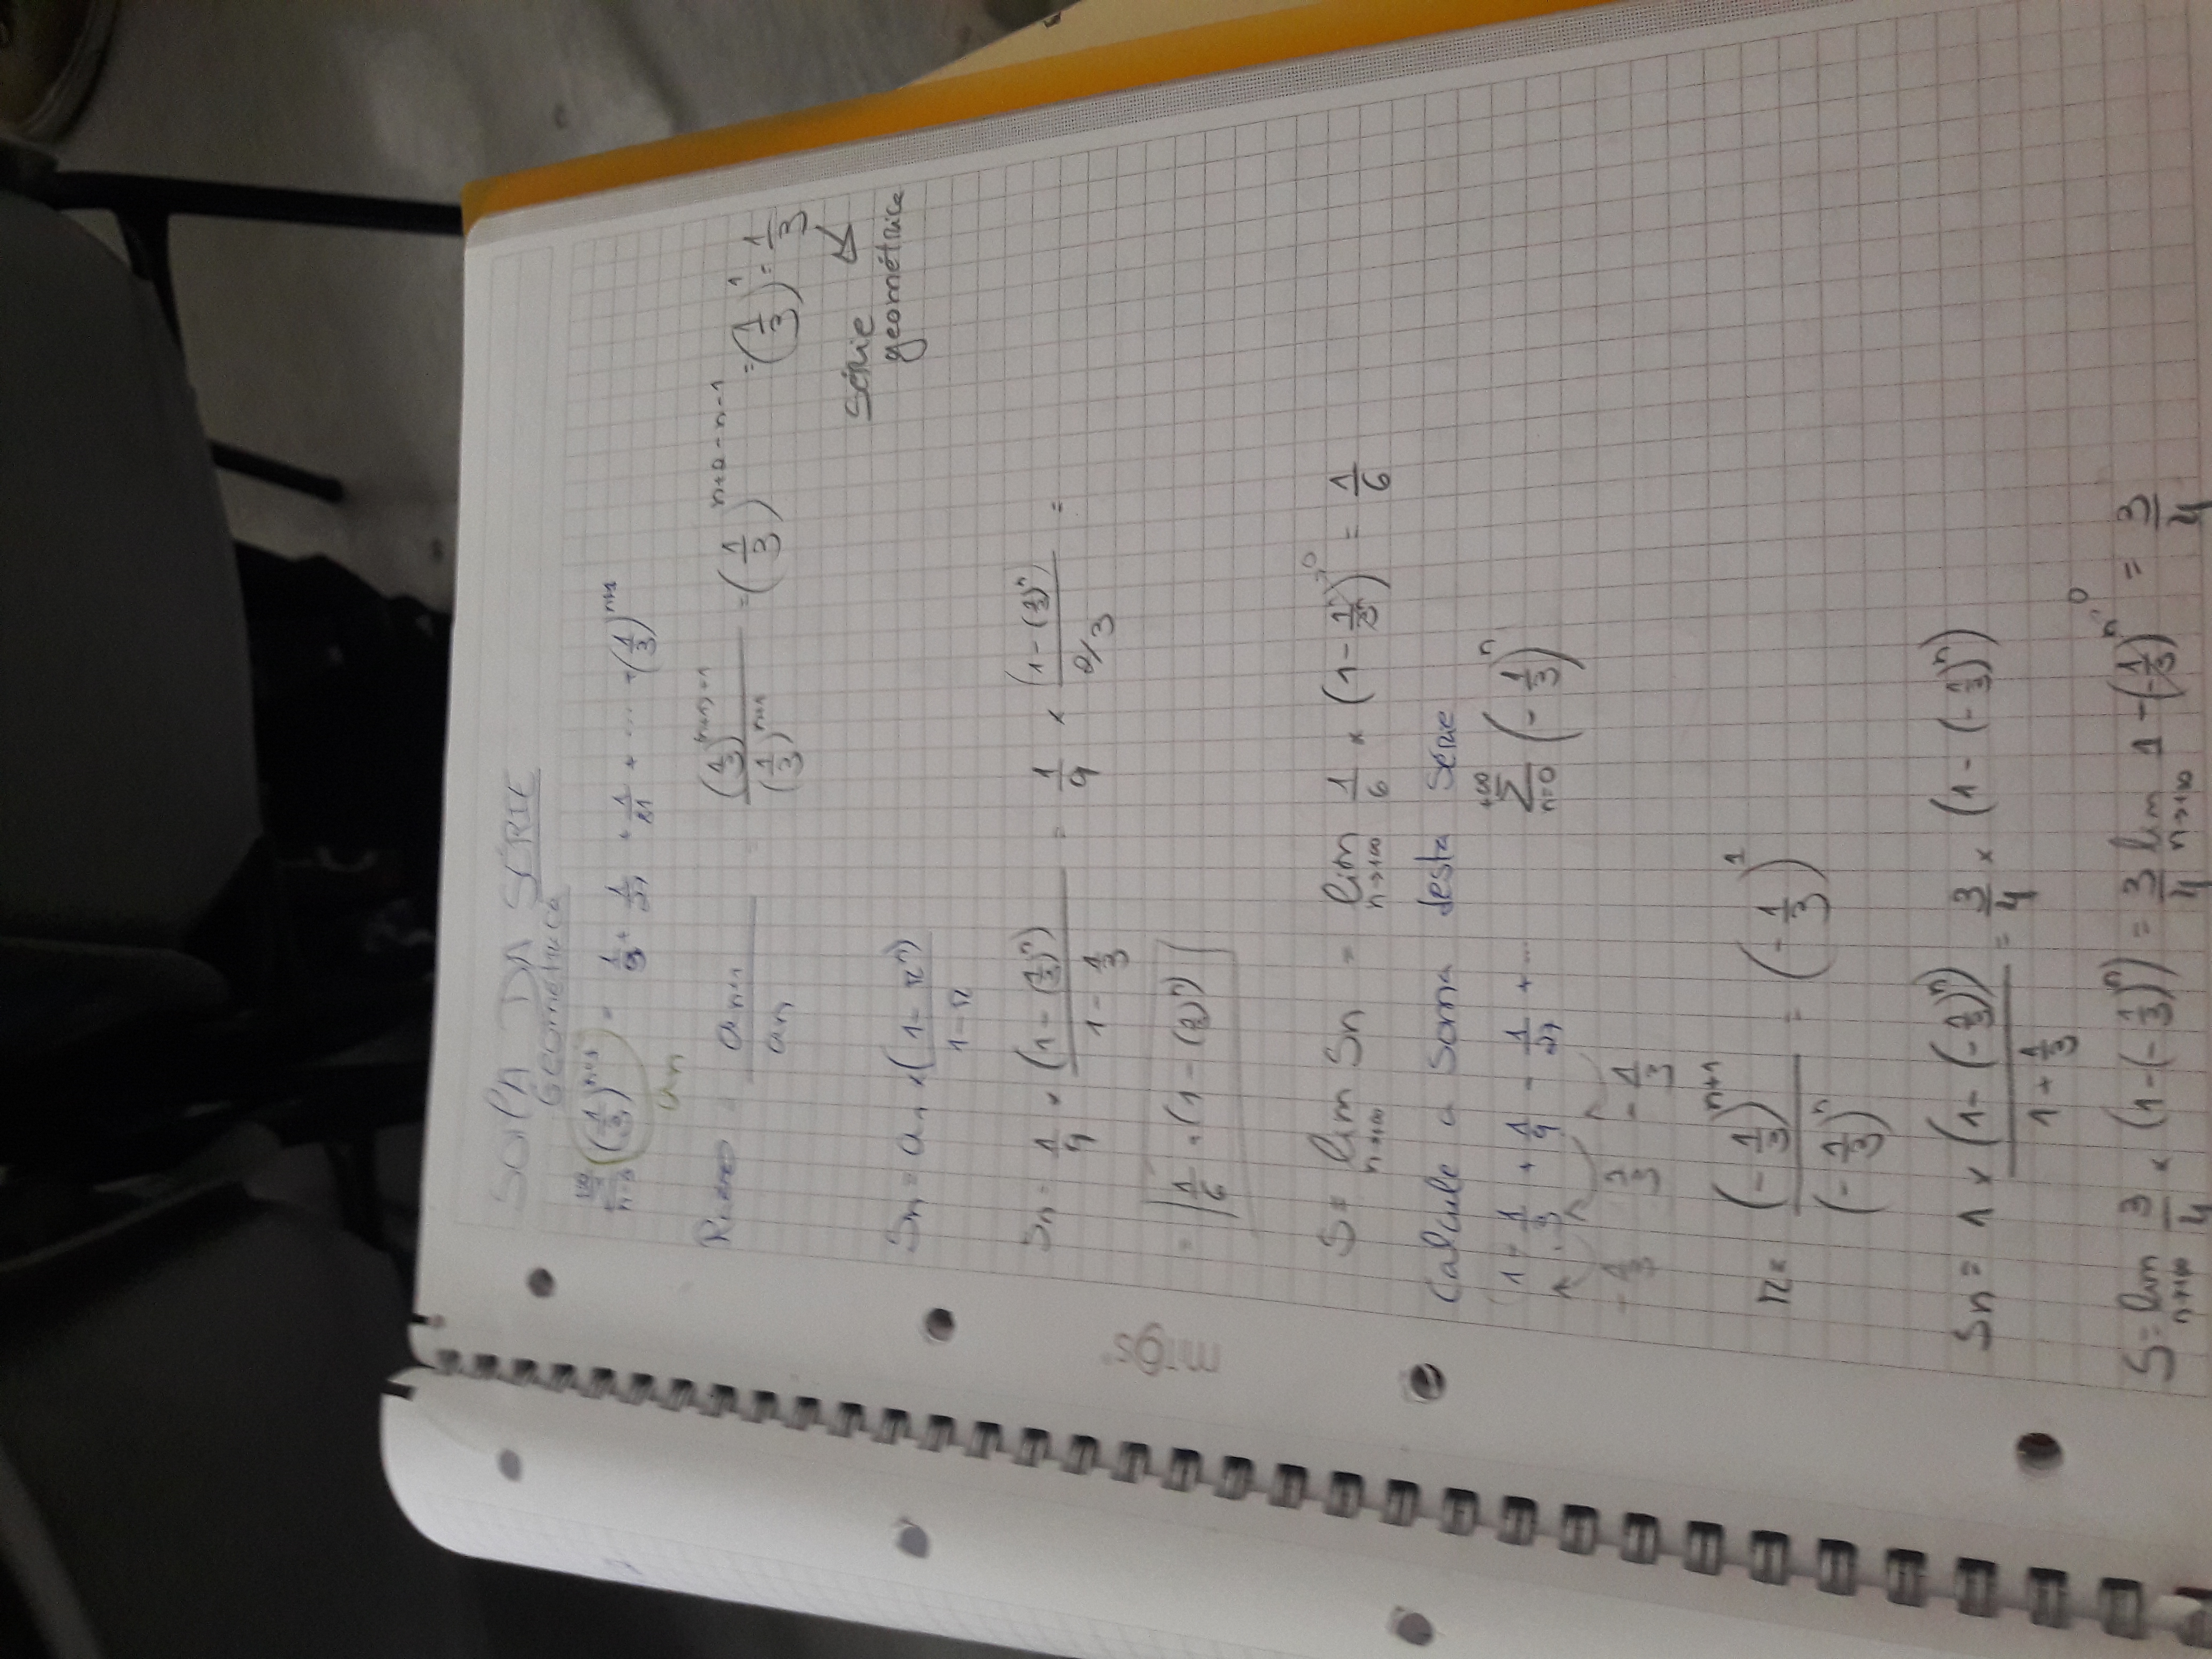 SOMA DA SÉRIE
Geométrica
(1/3)^(n+1) = 1/9 + 1/27 + 1/81 + ... + (1/3)^(n+1)
an
Razão = an+1 / an = (1/3)^((n+1)+1) / (1/3)^(n+1) = (1/3)^(n+2-n-1) = (1/3)^1 = 1/3
Série
geométrica
Sn = a1 × (1 - r^n) / (1 - r)
Sn = 1/9 × (1 - (1/3)^n) / (1 - 1/3) = 1/9 × (1 - (1/3)^n) / (2/3) =
= 1/6 · (1 - (1/3)^n)
migs
S = lim n→+∞ Sn = lim n→+∞ 1/6 × (1 - 1/3^n)→0 = 1/6
Calcule a soma desta série
1 - 1/3 + 1/9 - 1/27 + ... +∞ Σ n=0 (-1/3)^n
- 1/3 - 1/3 - 1/3
r = (-1/3)^(n+1) / (-1/3)^n = (-1/3)^1
Sn = 1 × (1 - (-1/3)^n) / (1 + 1/3) = 3/4 × (1 - (-1/3)^n)
S = lim n→+∞ 3/4 × (1 - (-1/3)^n) = 3/4 lim n→+∞ 1 - (-1/3)^n→0 = 3/4